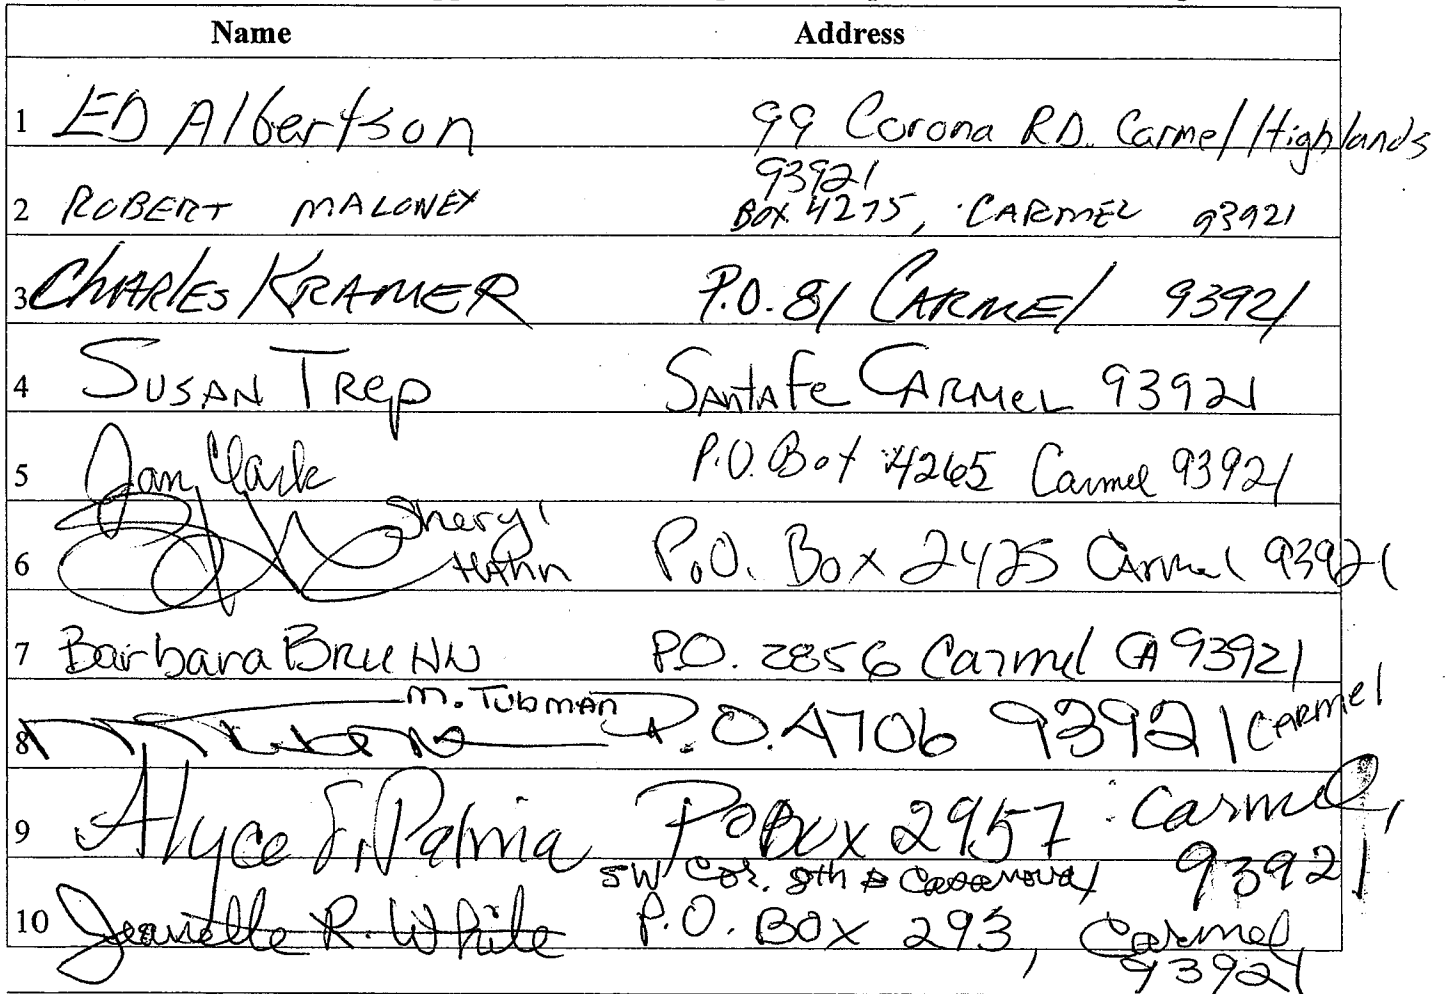 Name Address
1 ED Albertson 99 Corona RD. Carmel Highlands
93921
2 ROBERT MALONEY BOX 4275, CARMEL 93921
3 CHARLES KRAMER P.O. 81 CARMEL 93921
4 SUSAN TRep SANTA Fe CARMEL 93921
5 Jan Clark P.O. Box 4265 Carmel 93921
6 Sheryl Hahn P.O. Box 2425 Carmel 93921
7 Barbara BRUHN P.O. 2856 Carmel CA 93921
8 M. TUBMAN P.O. A706 93921 CARMEL
9 Alyce F. Palmia PO Box 2957 Carmel,
93921
SW Cor. 8th & Casanova
10 Jeanette R. White P.O. BOX 293, Carmel
93921